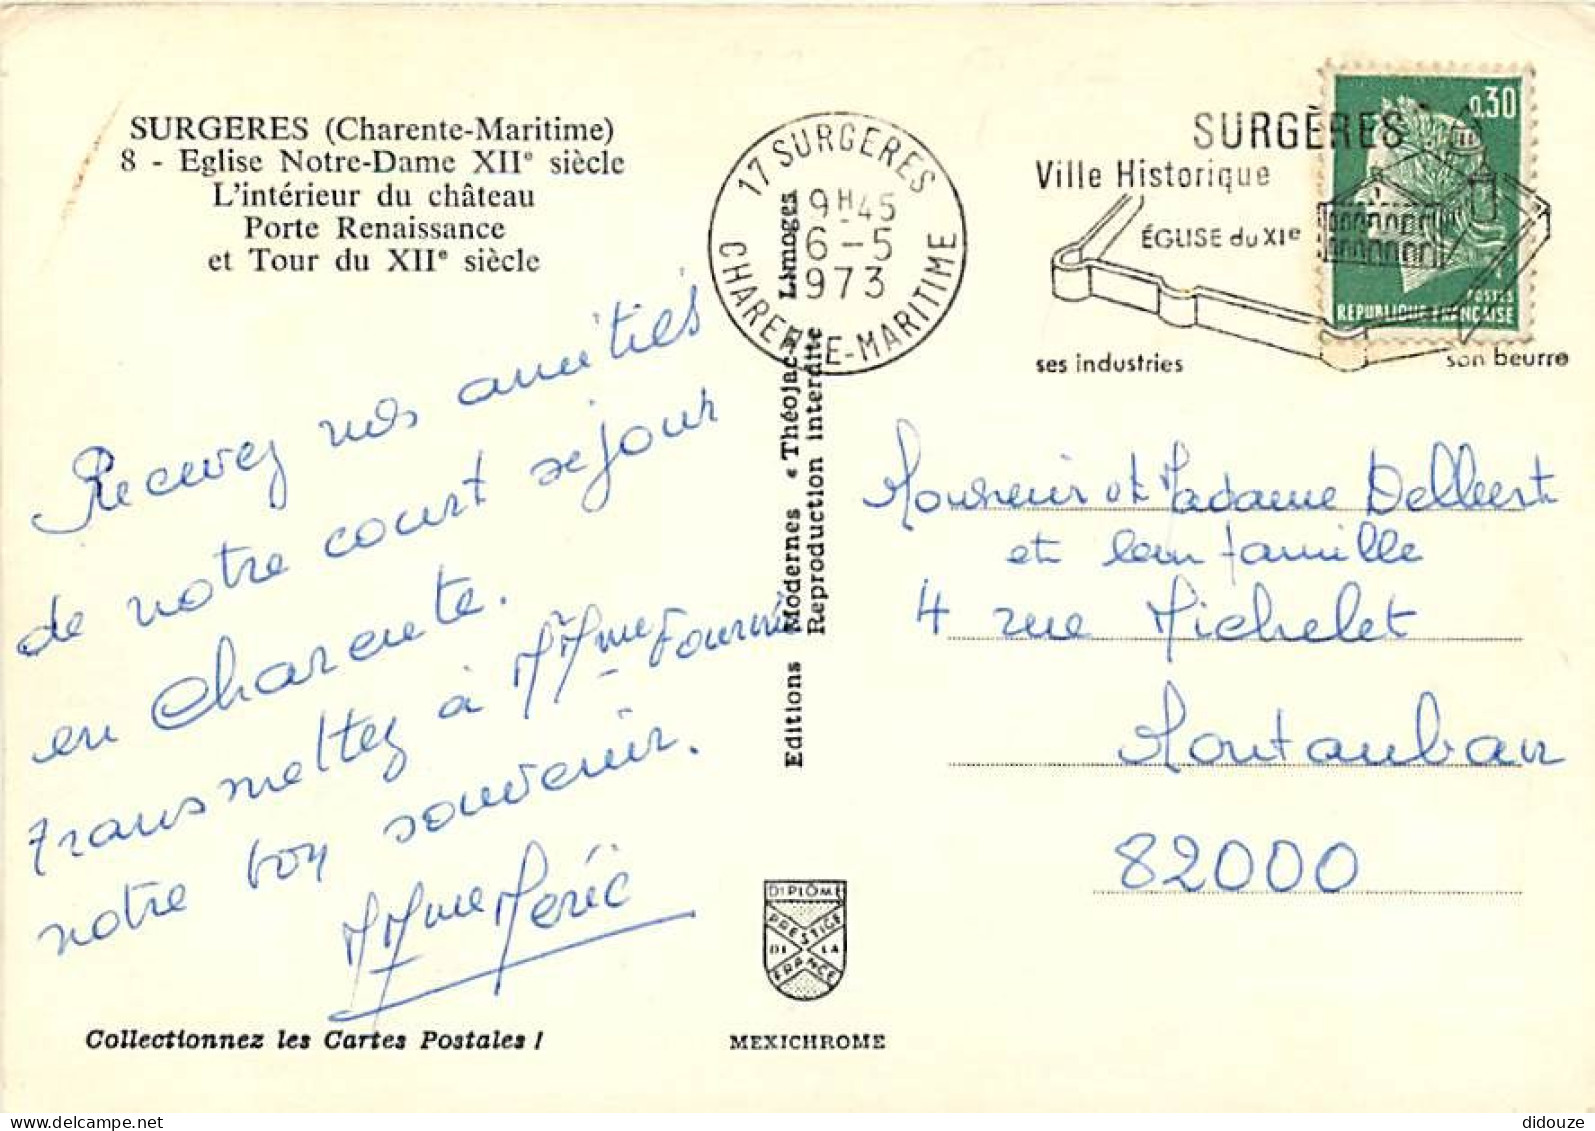 SURGERES (Charente-Maritime)
8 - Eglise Notre-Dame XIIe siècle
L'intérieur du château
Porte Renaissance
et Tour du XIIe siècle
Recevez nos amitiés
de notre court séjour
en Charente.
transmettez à MMme Fournié
notre bon souvenir.
MMme Méric
Collectionnez les Cartes Postales !
Editions Modernes « Théojac » Limoges
Reproduction interdite
17 SURGERES
9H45
6-5
973
CHARENTE-MARITIME
SURGÈRES
Ville Historique
ÉGLISE du XIe
ses industries
son beurre
0,30
POSTES
REPUBLIQUE FRANÇAISE
Monsieur et Madame Delbert
et leur famille
4 rue Michelet
Montauban
82000
DIPLÔME
PRESTIGE
DE LA
FRANCE
MEXICHROME
Delcampe.net
didouze